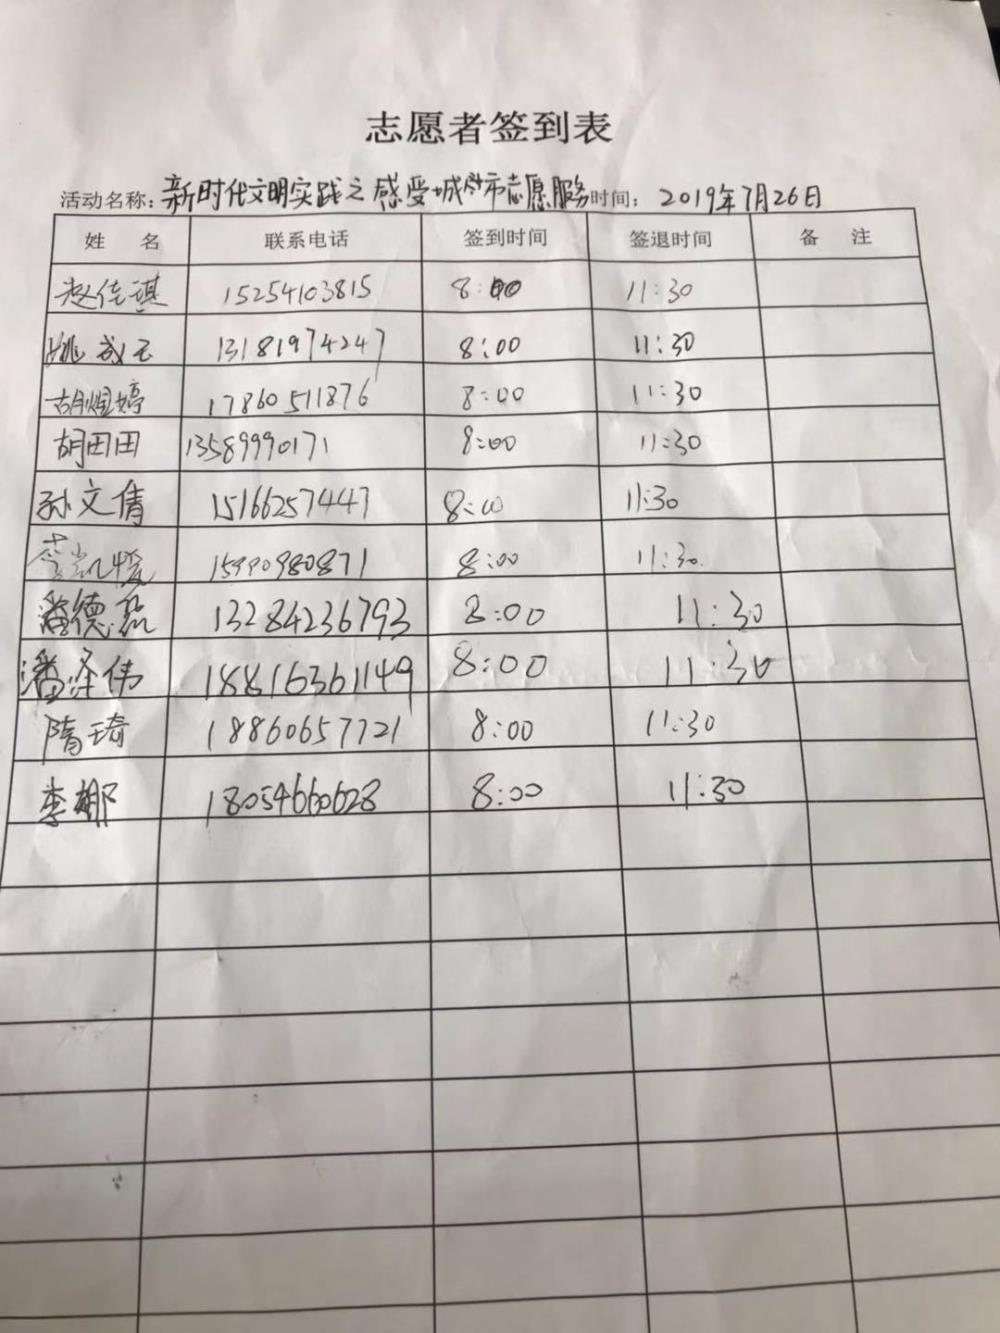 志愿者签到表
活动名称：新时代文明实践之感受城市志愿服务 时间：2019年7月26日
姓 名 联系电话 签到时间 签退时间 备 注
赵佳琪 15254103815 8:00 11:30
姚成玉 13181974247 8:00 11:30
胡煜婷 17860511876 8:00 11:30
胡田田 13589990171 8:00 11:30
孙文倩 15166257447 8:00 11:30
凯 8:00 11:30
潘德磊 13284236793 8:00 11:30
潘泽伟 18816361149 8:00 11:30
隋琦 18860657721 8:00 11:30
李娜 18054660628 8:00 11:30